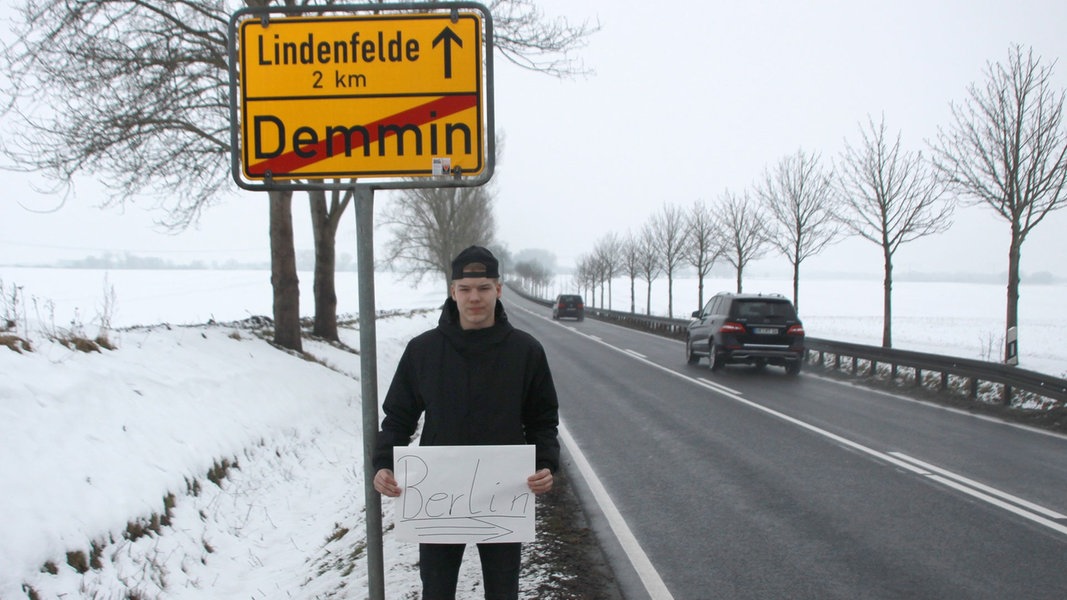 Lindenfelde
2 km
Demmin
Berlin